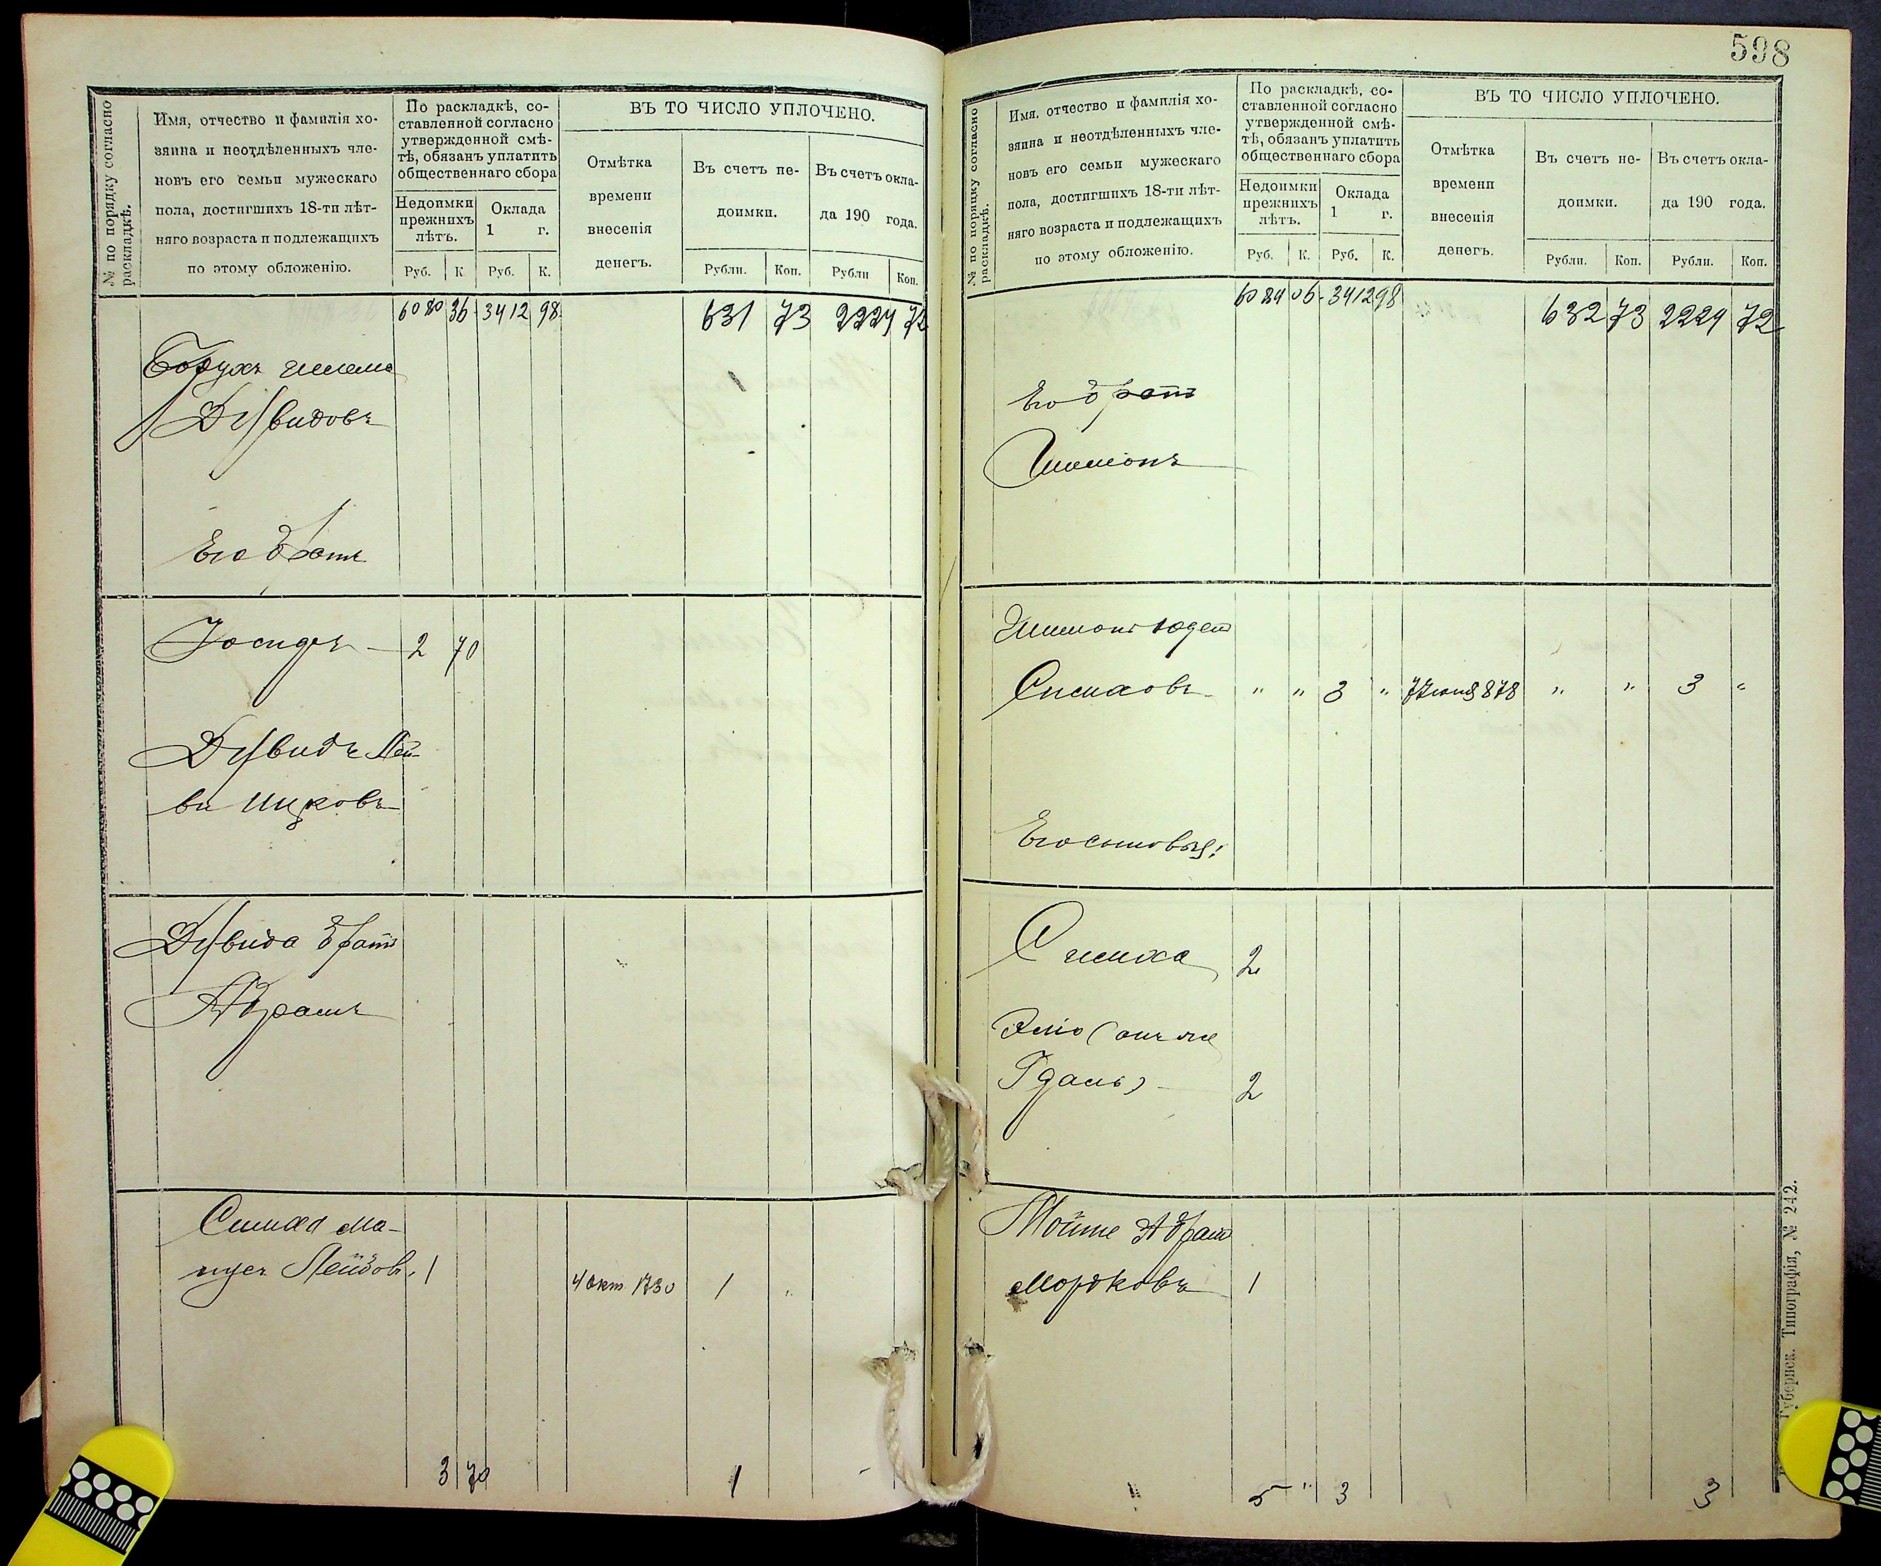 № по порядку согласно раскладкѣ.
Имя, отчество и фамилія хо-
зяина и неотдѣленныхъ чле-
новъ его семьи мужескаго
пола, достигшихъ 18-ти лѣт-
няго возраста и подлежащихъ
по этому обложенію.
По раскладкѣ, со-
ставленной согласно
утвержденной смѣ-
тѣ, обязанъ уплатить
общественнаго сбора
Недоимки
прежнихъ
лѣтъ.
Оклада
1 г.
Руб. К. Руб. К.
ВЪ ТО ЧИСЛО УПЛОЧЕНО.
Отмѣтка
времени
внесенія
денегъ.
Въ счетъ не-
доимки.
Въ счетъ окла-
да 190 года.
Рубли. Коп. Рубли Коп.
6080 36 3412 98 631 73 2224 72
Борухъ
Дувидовъ
Его братъ
Іосифъ 2 70
Дувидъ Лей-
ба Ицковъ
Дувида братъ
Абрамъ
Симха Ма-
Лейбов. 1 4 окт 1
3 70 1
598
№ по порядку согласно раскладкѣ.
Имя, отчество и фамилія хо-
зяина и неотдѣленныхъ чле-
новъ его семьи мужескаго
пола, достигшихъ 18-ти лѣт-
няго возраста и подлежащихъ
по этому обложенію.
По раскладкѣ, со-
ставленной согласно
утвержденной смѣ-
тѣ, обязанъ уплатить
общественнаго сбора
Недоимки
прежнихъ
лѣтъ.
Оклада
1 г.
Руб. К. Руб. К.
ВЪ ТО ЧИСЛО УПЛОЧЕНО.
Отмѣтка
времени
внесенія
денегъ.
Въ счетъ не-
доимки.
Въ счетъ окла-
да 190 года.
Рубли. Коп. Рубли. Коп.
6084 06 3412 98 632 73 2224 72
Его братъ
Шимонъ
Шимонъ Юдель
Симховъ " " 3 " 878 " " 3 "
Его сыновья:
Симха 2
Элiо (онъ же
Гдаль) 2
Мойше Абрам
Мордковъ 1
5 " 3 3
Губернск. Типографія, № 242.